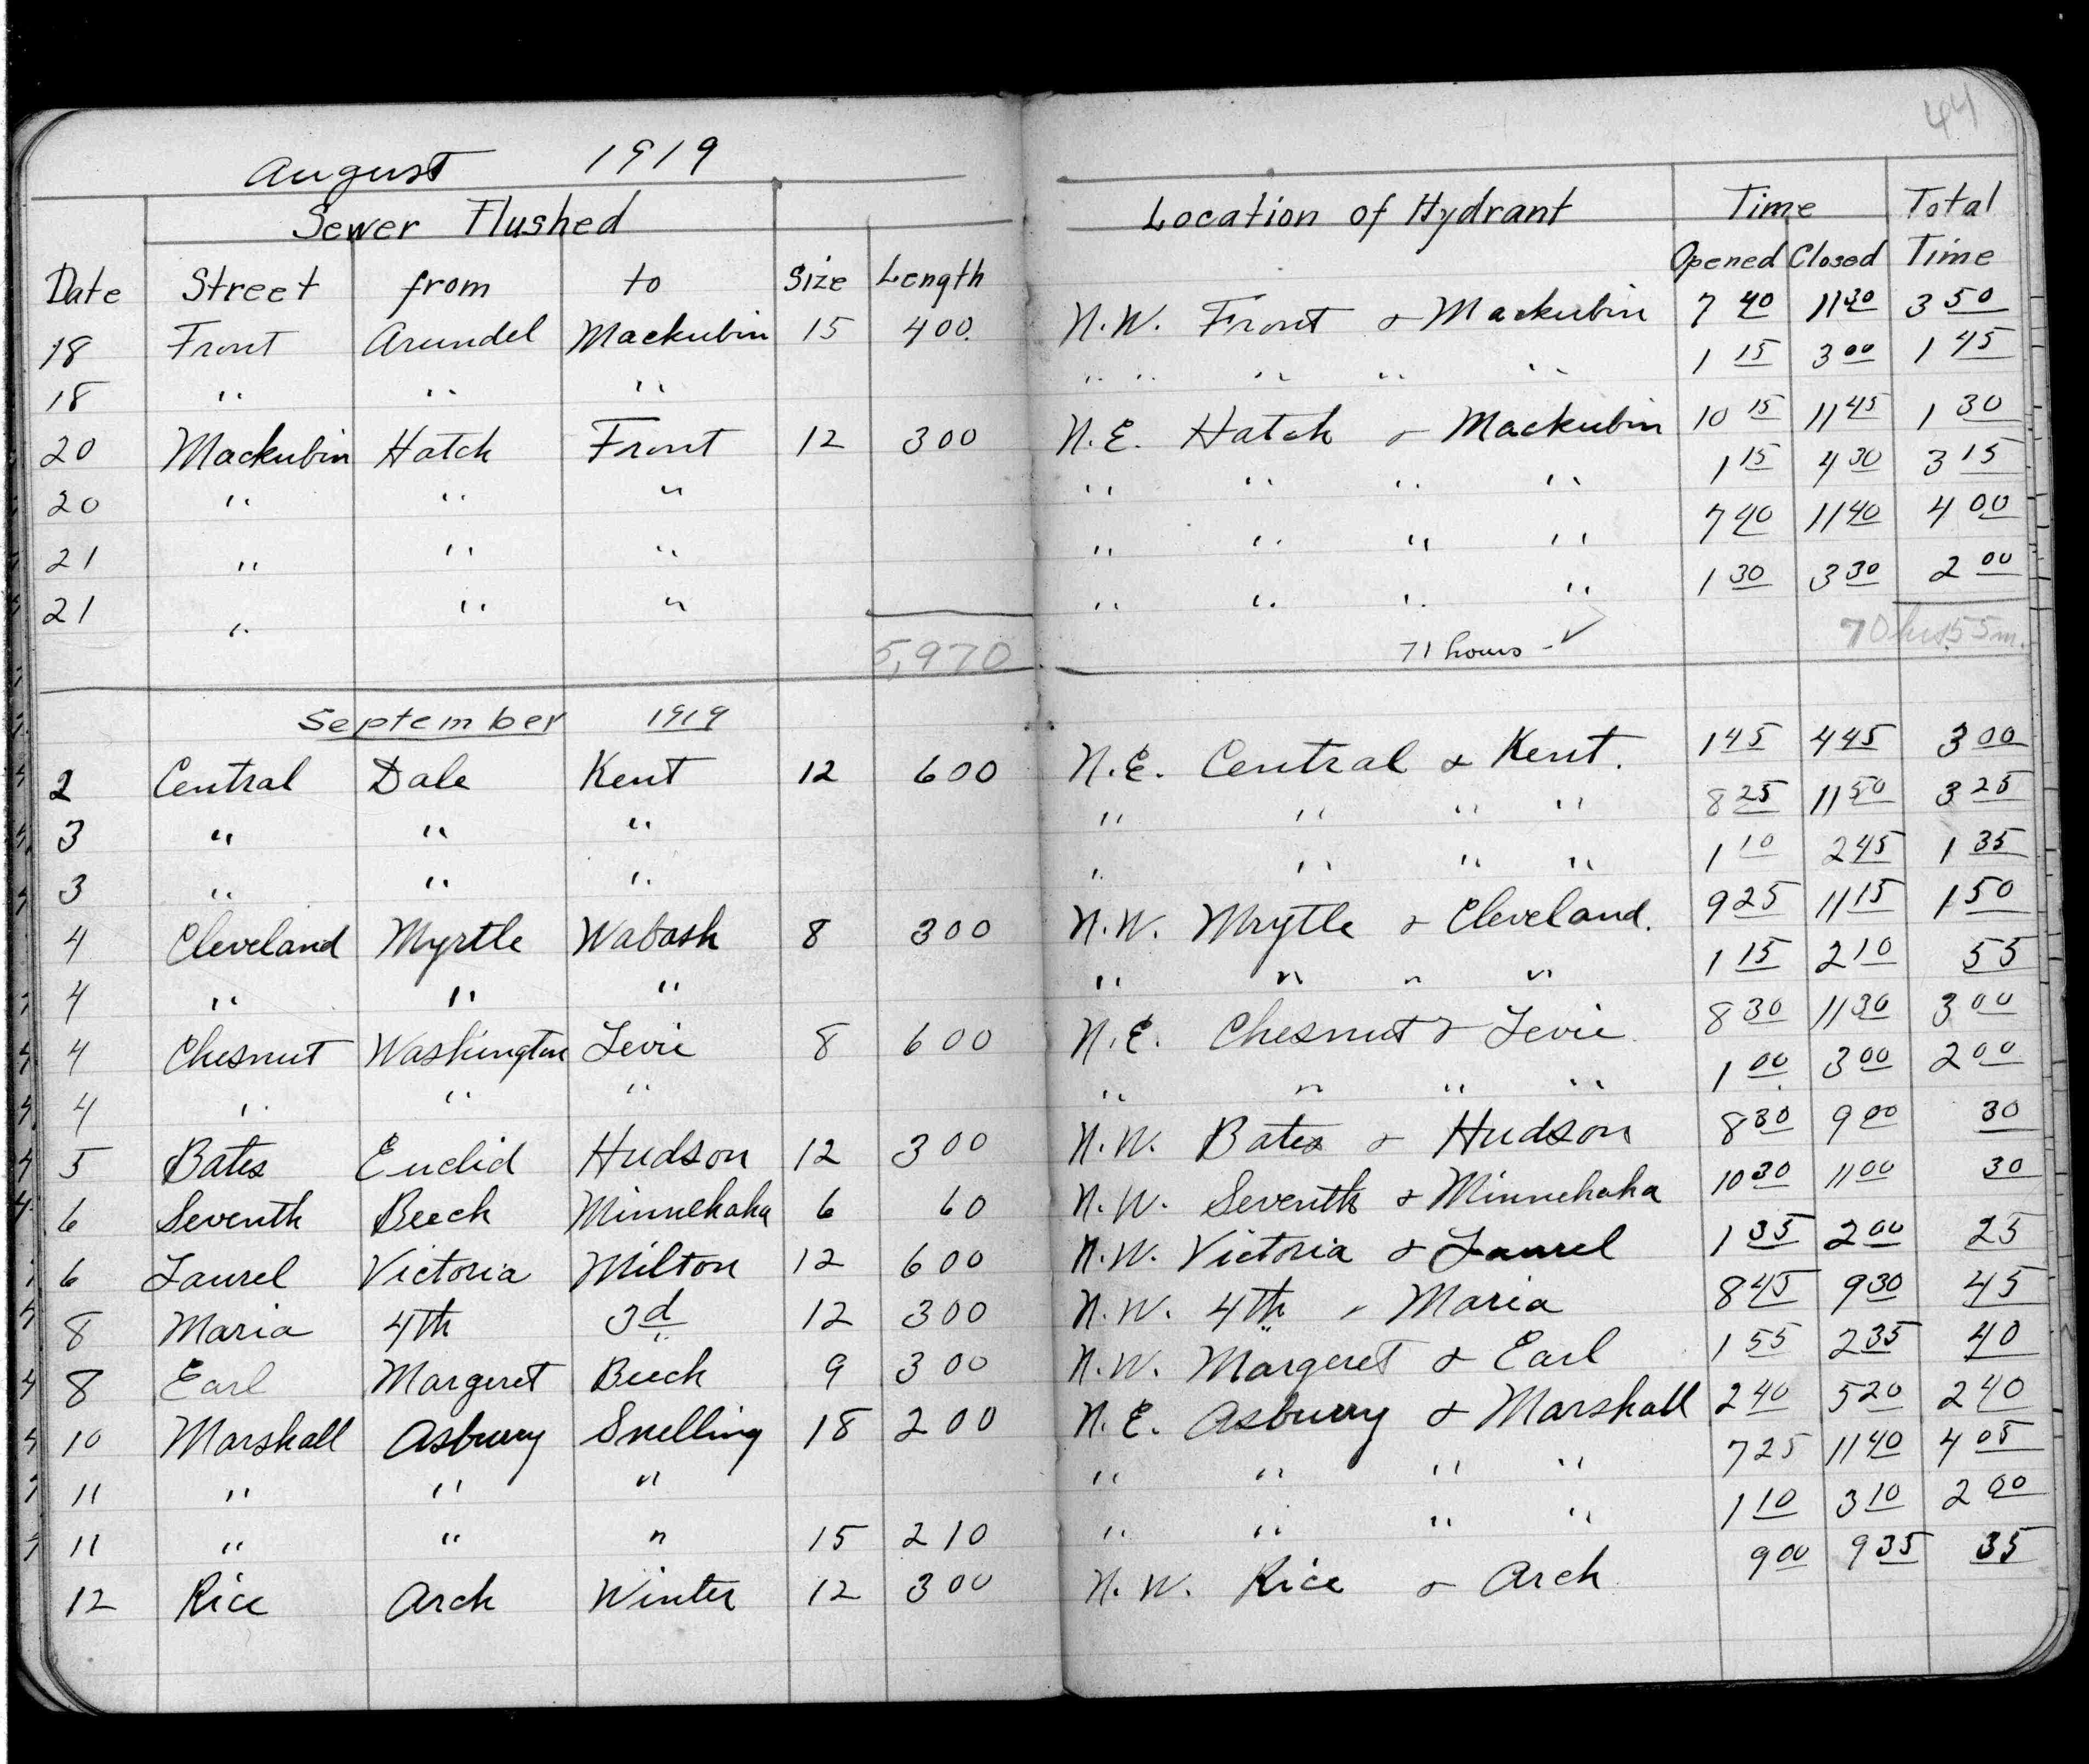 44
August 1919
Sewer Flushed Location of Hydrant Time Total
Date Street from to Size Length Opened Closed Time
18 Front Arundel Mackubin 15 400. N.W. Front & Mackubin 7 40 11 30 3 50
18 " " " " " " " " 1 15 3 00 1 45
20 Mackubin Hatch Front 12 300 N.E. Hatch & Mackubin 10 15 11 45 1 30
20 " " " " " " " 1 15 4 30 3 15
21 " " " " " " " 7 40 11 40 4 00
21 " " " " " " " 1 30 3 30 2 00
5,970 71 hours - ✓ 70 hrs 55 m.
September 1919
2 Central Dale Kent 12 600 N.E. Central & Kent. 1 45 4 45 3 00
3 " " " " " " " 8 25 11 50 3 25
3 " " " " " " " 1 10 2 45 1 35
4 Cleveland Myrtle Wabash 8 300 N.W. Mrytle & Cleveland. 9 25 11 15 1 50
4 " " " " " " " 1 15 2 10 55
4 Chesnut Washington Levie 8 600 N.E. Chesnut & Levie 8 30 11 30 3 00
4 " " " " " " " 1 00 3 00 2 00
5 Bates Euclid Hudson 12 300 N.W. Bates & Hudson 8 30 9 00 30
6 Seventh Beech Minnehaha 6 60 N.W. Seventh & Minnehaha 10 30 11 00 30
6 Laurel Victoria Milton 12 600 N.W. Victoria & Laurel 1 35 2 00 25
8 Maria 4th 3d 12 300 N.W. 4th & Maria 8 45 9 30 45
8 Earl Margeret Beech 9 300 N.W. Margeret & Earl 1 55 2 35 40
10 Marshall Asbury Snelling 18 200 N.E. Asbury & Marshall 2 40 5 20 2 40
11 " " " " " " " 7 25 11 40 4 05
11 " " " 15 210 " " " " 1 10 3 10 2 00
12 Rice Arch Winter 12 300 N.W. Rice & Arch 9 00 9 35 35